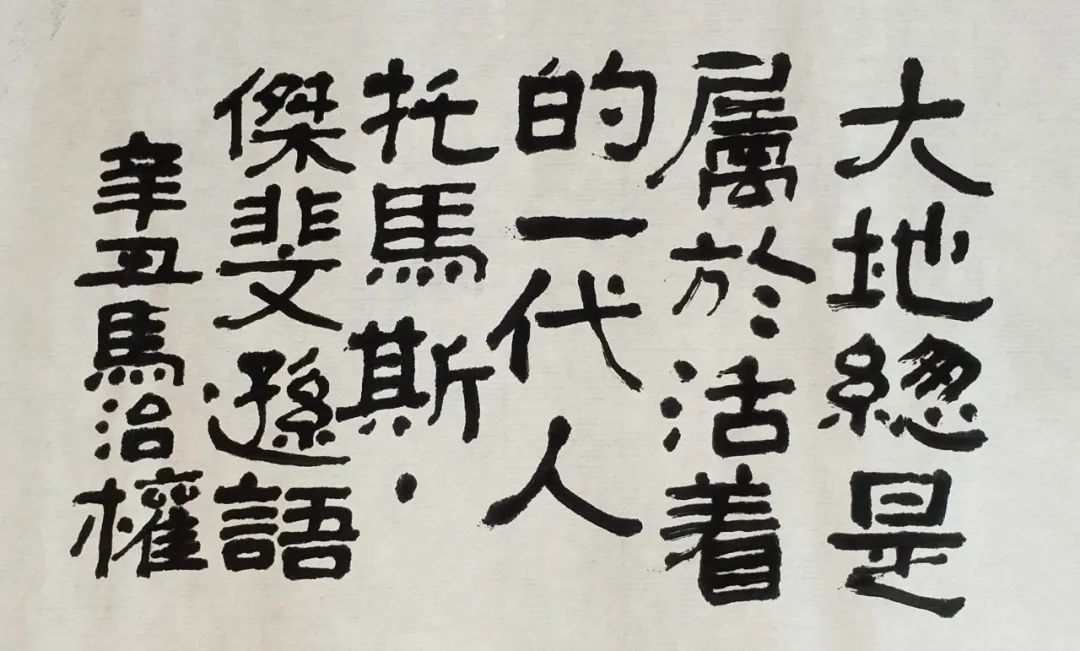 大地總是
屬於活着
的一代人
托馬斯·
傑斐遜語
辛丑馬治權